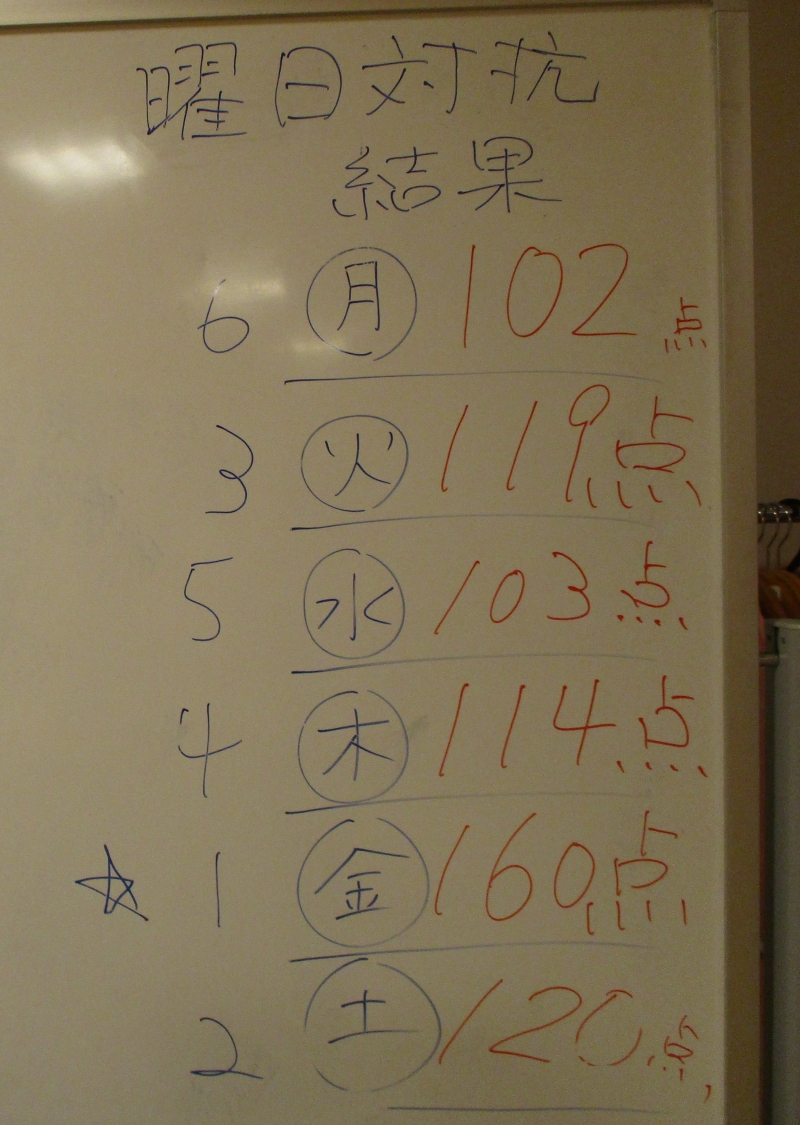 曜日対抗
結果
6 月 102点
3 火 119点
5 水 103点
4 木 114点
☆ 1 金 160点
2 土 120点